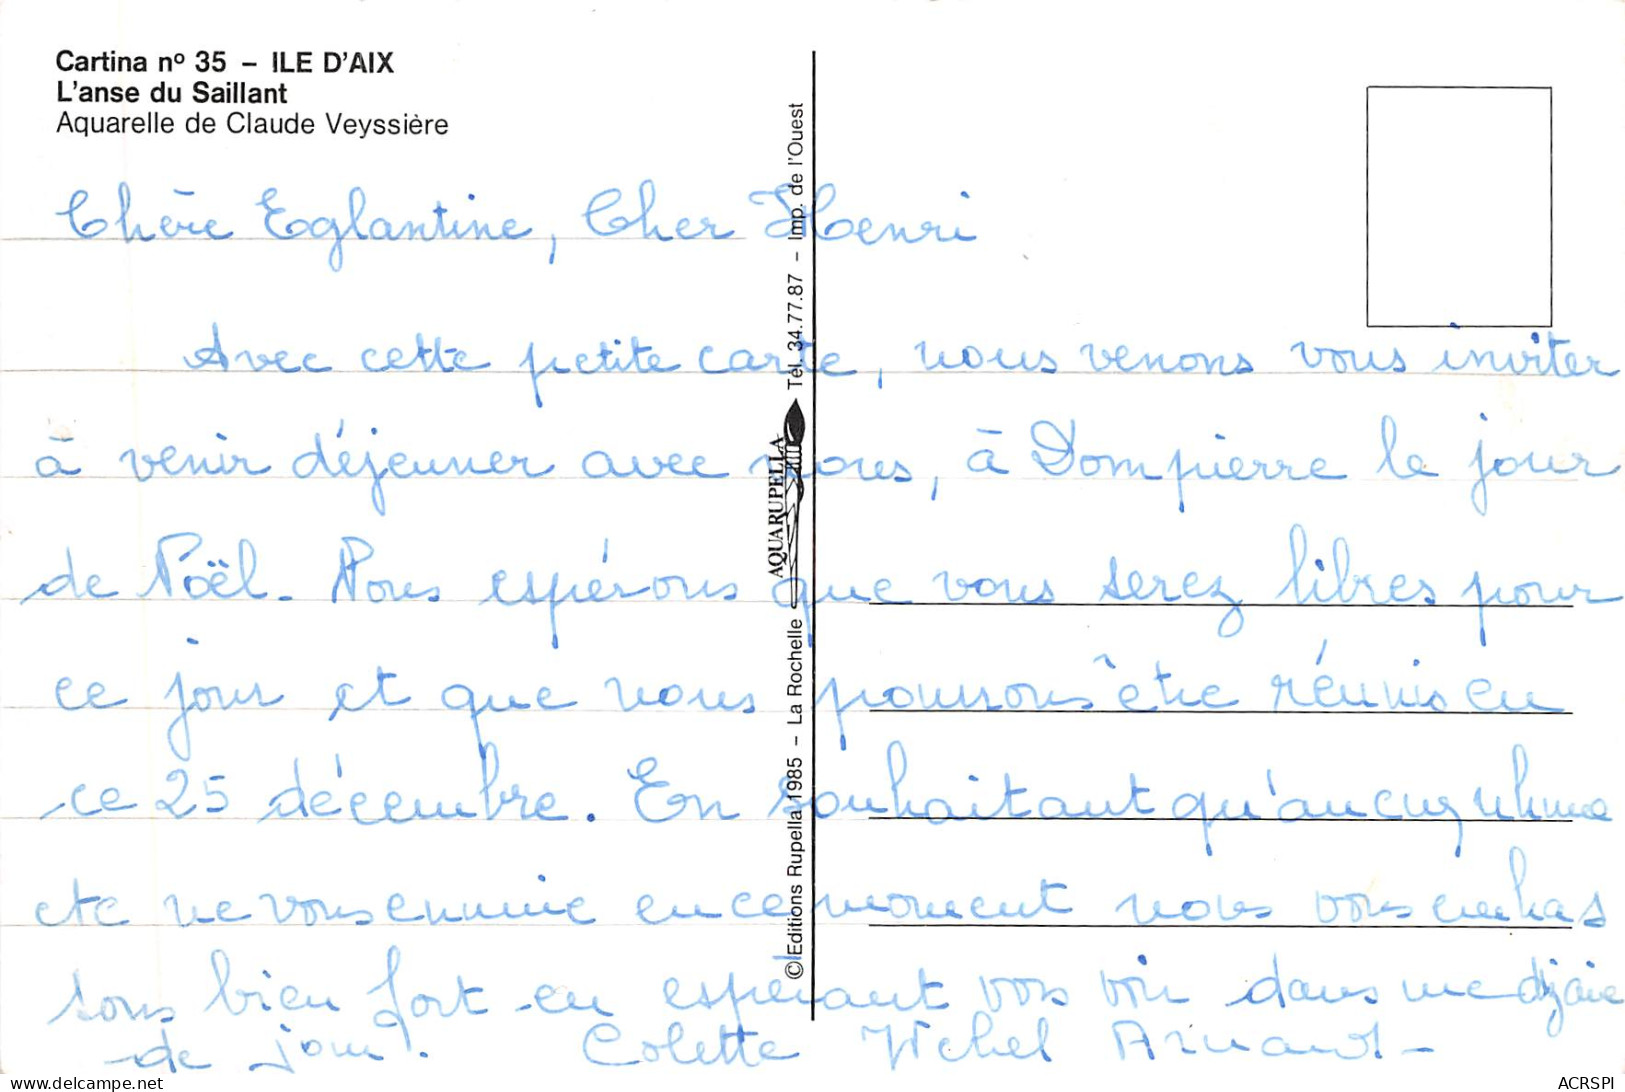 Cartina nº 35 – ILE D'AIX
L'anse du Saillant
Aquarelle de Claude Veyssière
Chère Eglantine, Cher Henri
Avec cette petite carte, nous venons vous inviter
à venir déjeuner avec nous, à Dompierre le jour
de Noël. Nous espérons que vous serez libres pour
ce jour et que nous pourrons être réunis en
ce 25 décembre. En souhaitant qu'aucun rhume
etc ne vous ennuie en ce moment nous vous embras
sons bien fort en espérant vous voir dans une dizaine
de jours. Colette Michel Arnaud –
©Editions Rupella 1985 – La Rochelle
AQUARUPELLA
Tél. 34.77.87 – Imp. de l'Ouest
ACRSPI